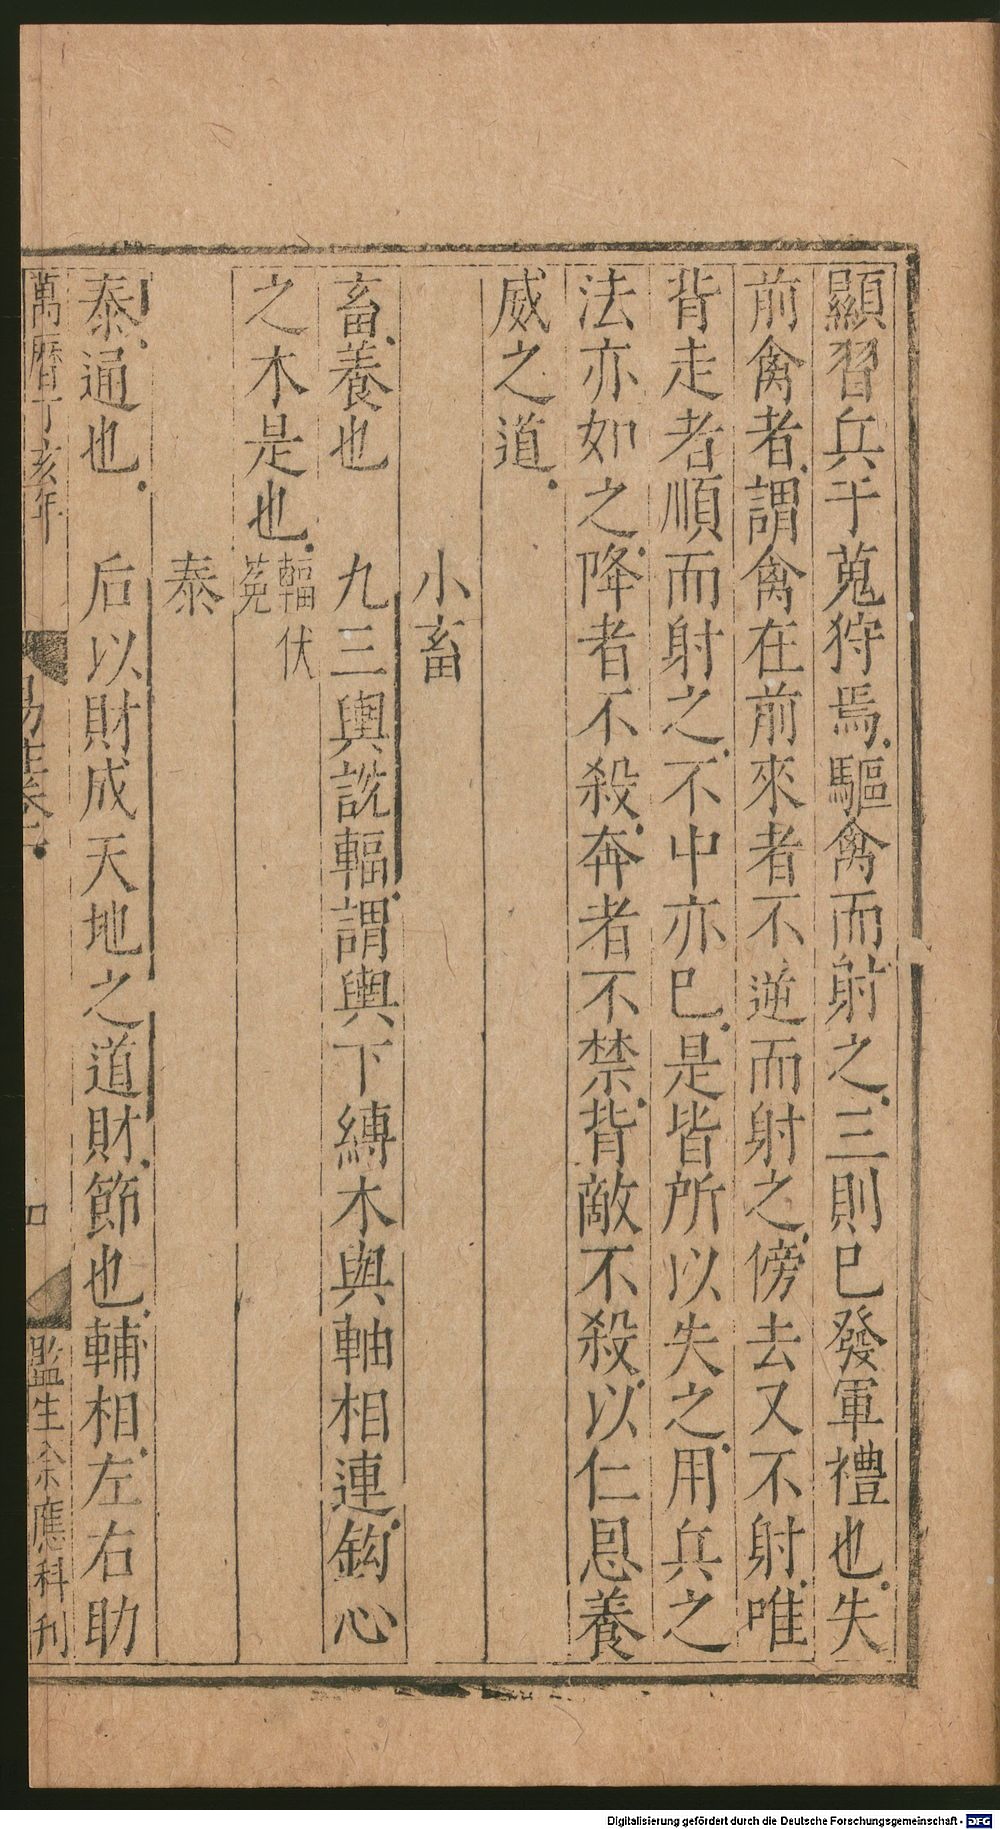 顯習兵于蒐狩焉驅禽而射之三則已發軍禮也失
前禽者謂禽在前來者不逆而射之傍去又不射唯
背走者順而射之不中亦已是皆所以失之用兵之
法亦如之降者不殺奔者不禁背敵不殺以仁恩養
威之道
小畜
畜養也　九三輿說輻謂輿下縛木與軸相連鈎心
之木是也 輻伏
菟
泰
泰通也　后以財成天地之道財節也輔相左右助
萬曆丁亥年 易 監生余應科刊
Digitalisierung gefördert durch die Deutsche Forschungsgemeinschaft - DFG